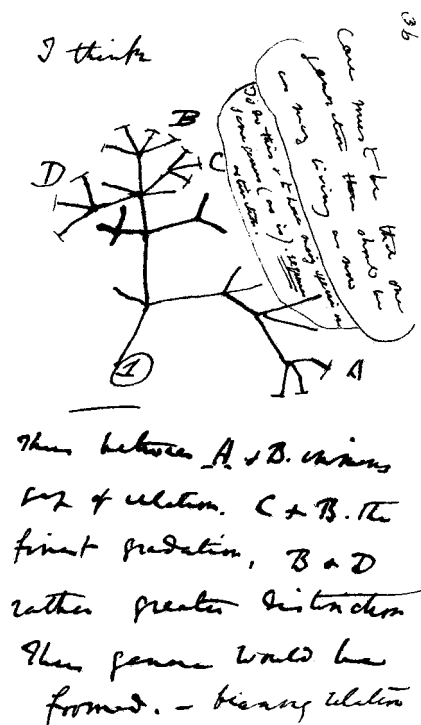 36
I think
Case must be that one
generation then should be
as many living as now
To do this & to have many species in
same genus (as is). requires
extinction.
B
C
D
A
1
Thus between A. & B. immens
gap of relation. C & B. the
finest gradation, B & D
rather greater distinction
Thus genera would be
formed. — bearing relation